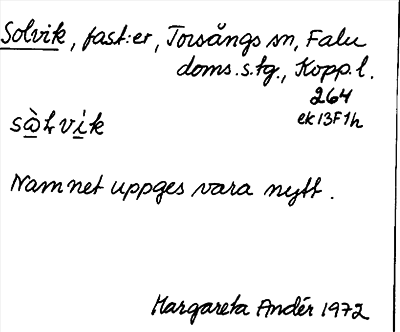 Solvik, fast:er, Torsångs sn, Falu
doms.s.tg., Kopp.l.
264
ek 13F1h
sòlvik
Namnet uppges vara nytt.
Margareta Andér 1972